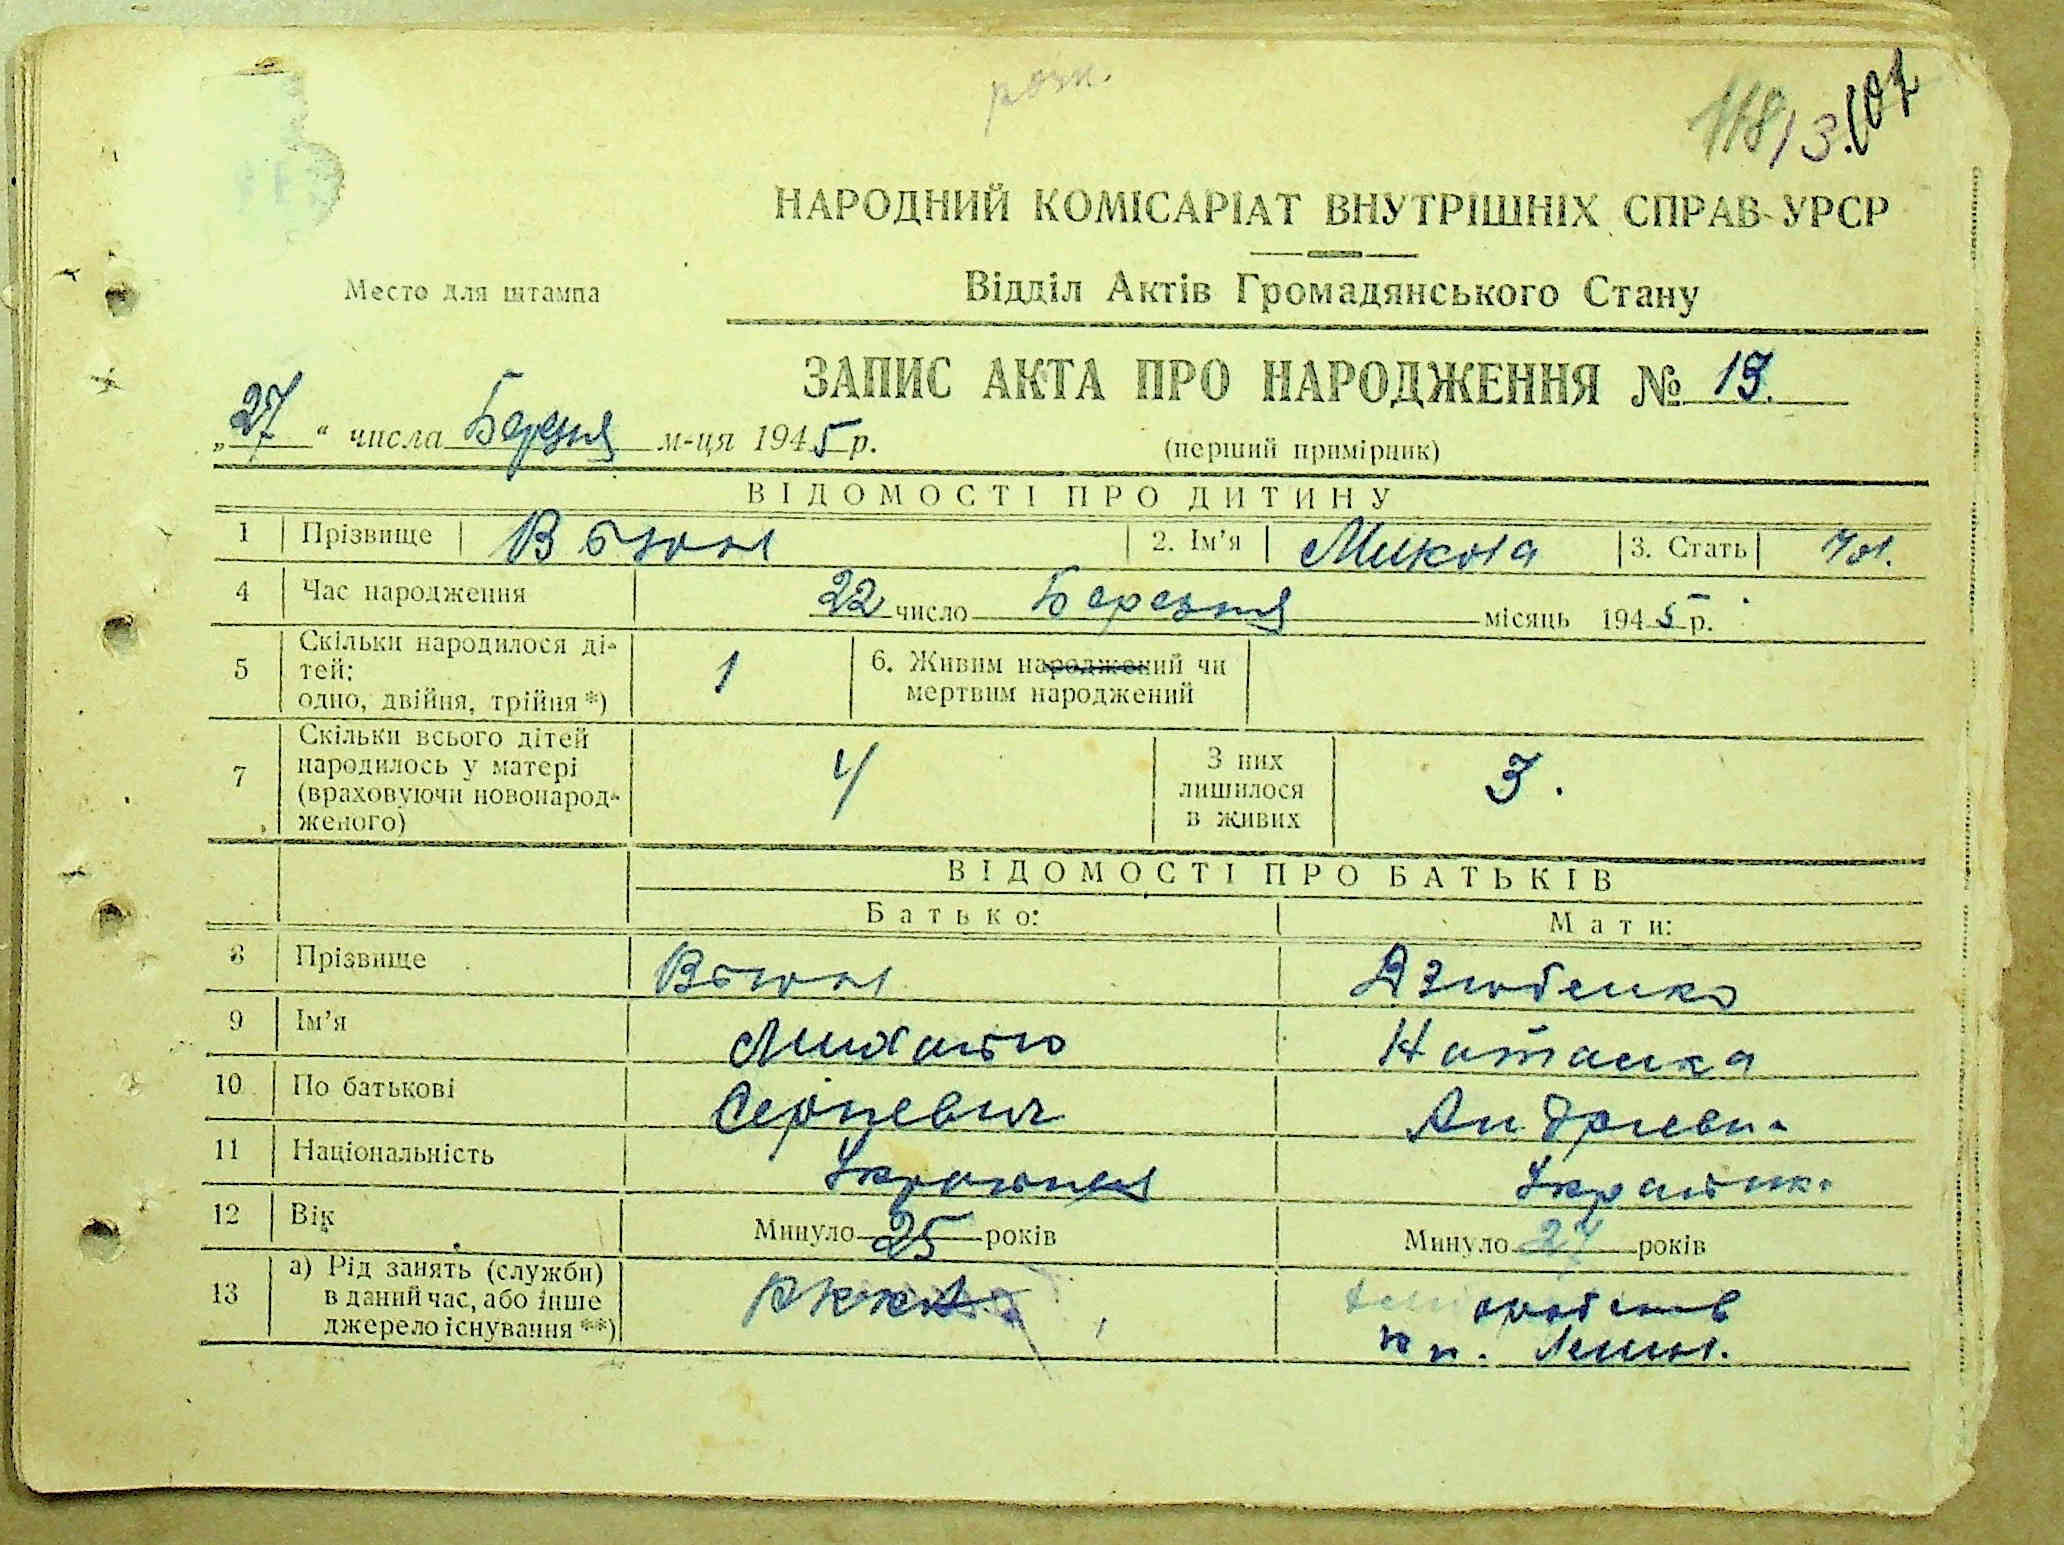 розп.
118/3.
НАРОДНИЙ КОМІСАРІАТ ВНУТРІШНІХ СПРАВ УРСР
Место для штампа
Відділ Актів Громадянського Стану
ЗАПИС АКТА ПРО НАРОДЖЕННЯ № 13.
„27“ числа Березня м-ця 1945 р.
(перший примірник)
ВІДОМОСТІ ПРО ДИТИНУ
1 Прізвище 2. Ім'я Микола 3. Стать чол.
4 Час народження 22 число Березня місяць 1945 р.
5 Скільки народилося ді-
тей:
одно, двійня, трійня *) 1
6. Живим народжений чи
мертвим народжений
7 Скільки всього дітей
народилось у матері
(враховуючи новонарод-
женого) 4
З них
лишилося
в живих 3.
ВІДОМОСТІ ПРО БАТЬКІВ
Батько: Мати:
8 Прізвище Дзюбенко
9 Ім'я Михайло Наталка
10 По батькові Сергіевич Андріевн.
11 Національність Українец Українк.
12 Вік Минуло 25 років Минуло 27 років
13 а) Рід занять (служби)
в даний час, або інше
джерело існування **) РККА